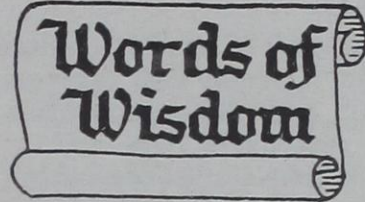 Words of
Wisdom